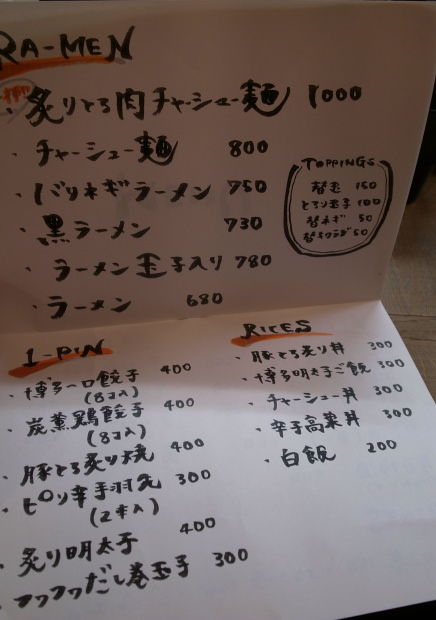 RA-MEN
・炙りとろ肉チャーシュー麺 1000
・チャーシュー麺 800
・バリネギラーメン 750
・黒ラーメン 730
・ラーメン玉子入り 780
・ラーメン 680
TOPPINGS
替玉 150
とろり玉子 100
替ネギ 50
替キクラゲ 50
1-PIN
・博多一口餃子 400
(8コ入)
・炭薫鶏餃子 400
(8コ入)
・豚とろ炙り焼 400
・ピリ辛手羽先 300
(2本入)
・炙り明太子 400
・フワフワだし巻玉子 300
RICES
・豚とろ炙り丼 300
・博多明太子ご飯 300
・チャーシュー丼 300
・辛子高菜丼 300
・白飯 200